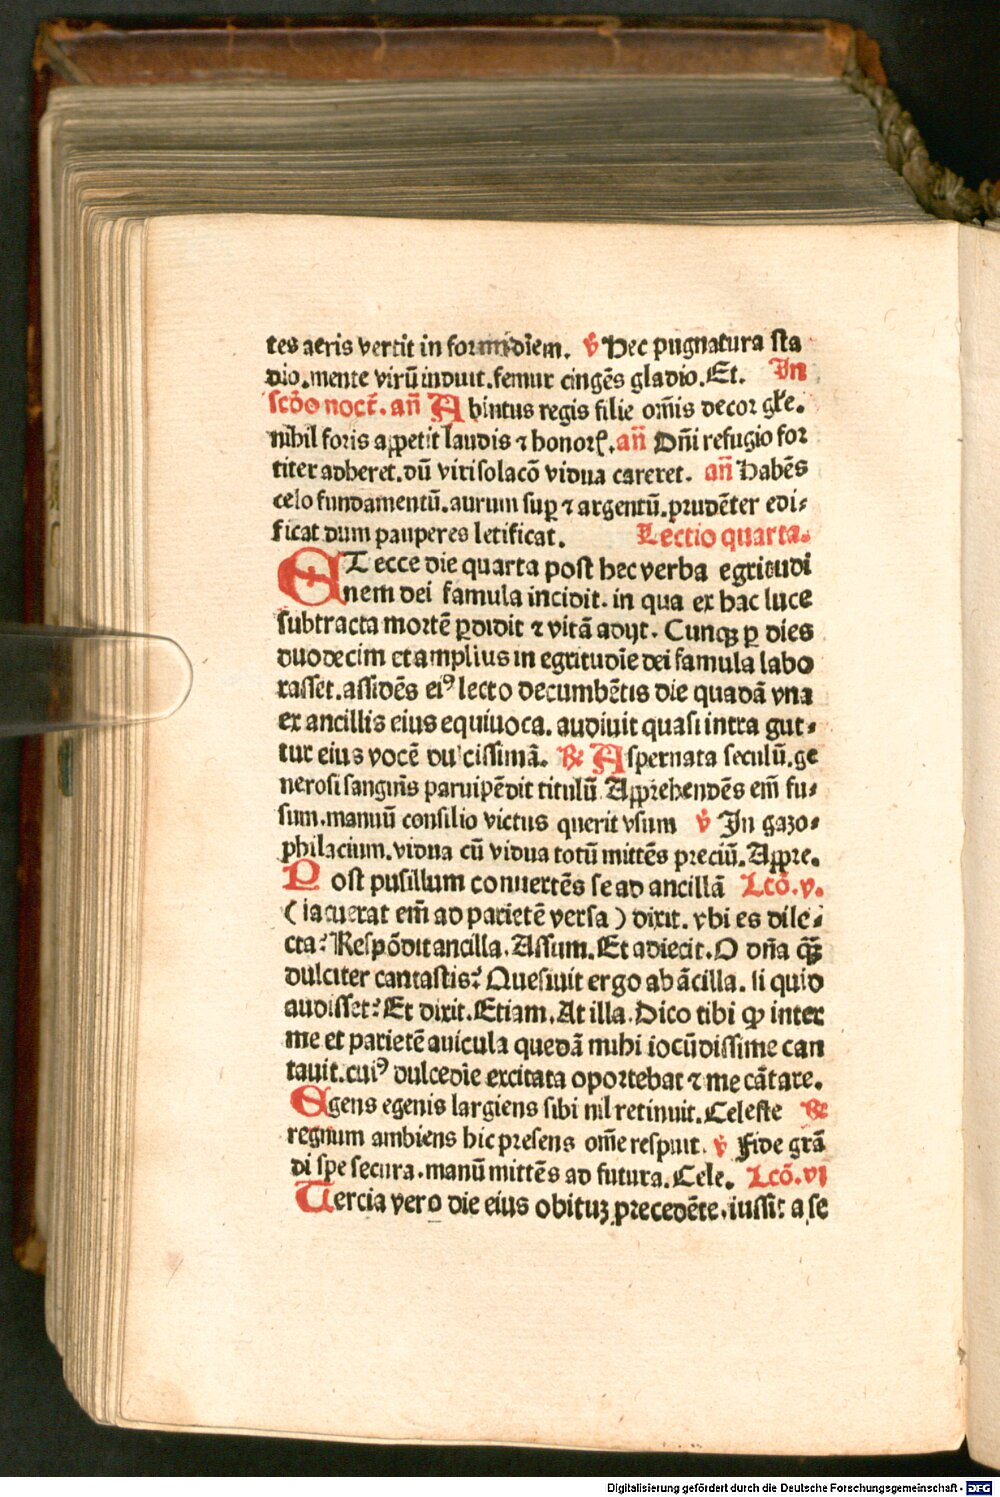 tes aeris vertit in formidīem. ℣ Hec pugnatura sta
dio.mente virū induit.femur cingēs gladio.Et. In
scōo noct̄. an̄ Ab intus regis filie om̄is decor głe.
nihil foris appetit laudis ⁊ honorꝭ.an̄ Dn̄i refugio for
titer adheret.dū viri solacō vidua careret. an̄ Habēs
celo fundamentū.aurum suꝑ ⁊ argentū.prudēter edi⸗
ficat dum pauperes letificat. Lectio quarta.
ET ecce die quarta post hec verba egritudi
nem dei famula incidit. in qua ex hac luce
subtracta mortē ꝑdidit ⁊ vitā adijt. Cunqꝫ ꝑ dies
duodecim et amplius in egritudīe dei famula labo
rasset.assidēs eiꝰ lecto decumbētis die quadā vna
ex ancillis eius equiuoca. audiuit quasi intra gut⸗
tur eius vocē dulcissimā. ℟ Aspernata seculū.ge
nerosi sangui̅s paruipēdit titulū Apprehendēs em̄ fu⸗
sum.manuū consilio victus querit vsum ℣ In gazo⸗
philacium.vidua cū vidua totū mittēs preciū.Appre.
Post pusillum conuertēs se ad ancillā Lcō.v.
(iacuerat em̄ ad parietē versa) dixit. vbi es dile⸗
cta? Respōdit ancilla. Assum. Et adiecit. O dn̄a qꝫ̄
dulciter cantastis? Quesiuit ergo ab ācilla. si quid
audisset? Et dixit. Etiam. At illa. Dico tibi ꝙ inter
me et parietē auicula quedā mihi iocūdissime can
tauit.cuiꝰ dulcedīe excitata oportebat ⁊ me cātare.
Egens egenis largiens sibi nil retinuit. Celeste ℟
regnum ambiens hic presens om̄e respuit. ℣ Fide grā
di spe secura.manū mittēs ad futura. Cele. Lcō.vi
Tercia vero die eius obituꝫ precedēte.iussit a se
Digitalisierung gefördert durch die Deutsche Forschungsgemeinschaft - DFG